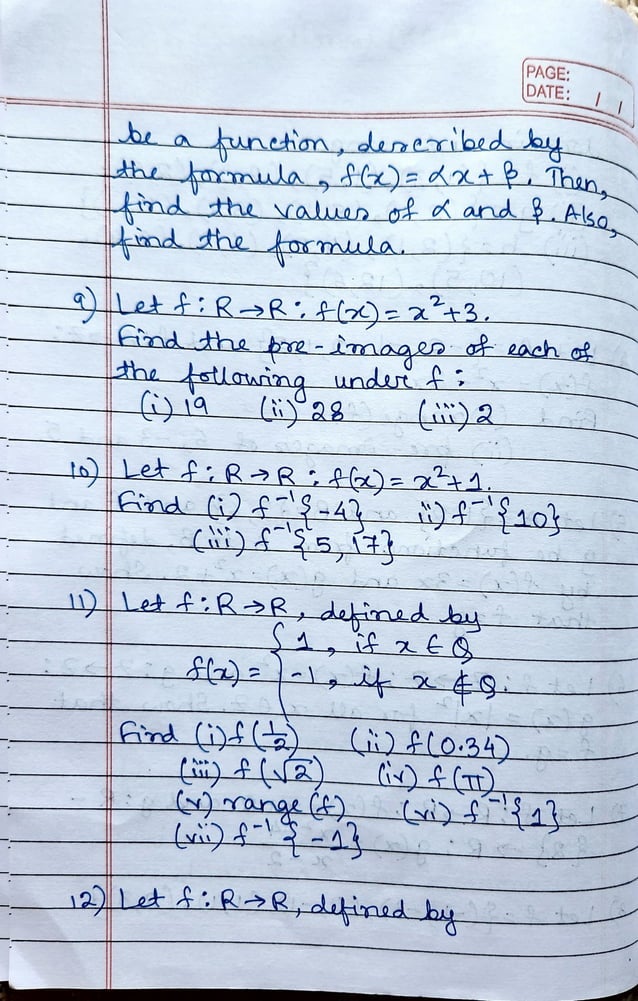 PAGE:
DATE: / /
be a function, described by
the formula, f(x) = αx + β. Then,
find the values of α and β. Also,
find the formula.
9) Let f : R → R : f(x) = x² + 3.
Find the pre-images of each of
the following under f :
(i) 19 (ii) 28 (iii) 2
10) Let f : R → R : f(x) = x² + 1.
Find (i) f⁻¹{-4} ii) f⁻¹{10}
(iii) f⁻¹{5, 17}
11) Let f : R → R, defined by
f(x) = { 1, if x ∈ Q
-1, if x ∉ Q.
Find (i) f(1/2) (ii) f(0.34)
(iii) f(√2) (iv) f(π)
(v) range (f) (vi) f⁻¹{1}
(vii) f⁻¹{-1}
12) Let f : R → R, defined by